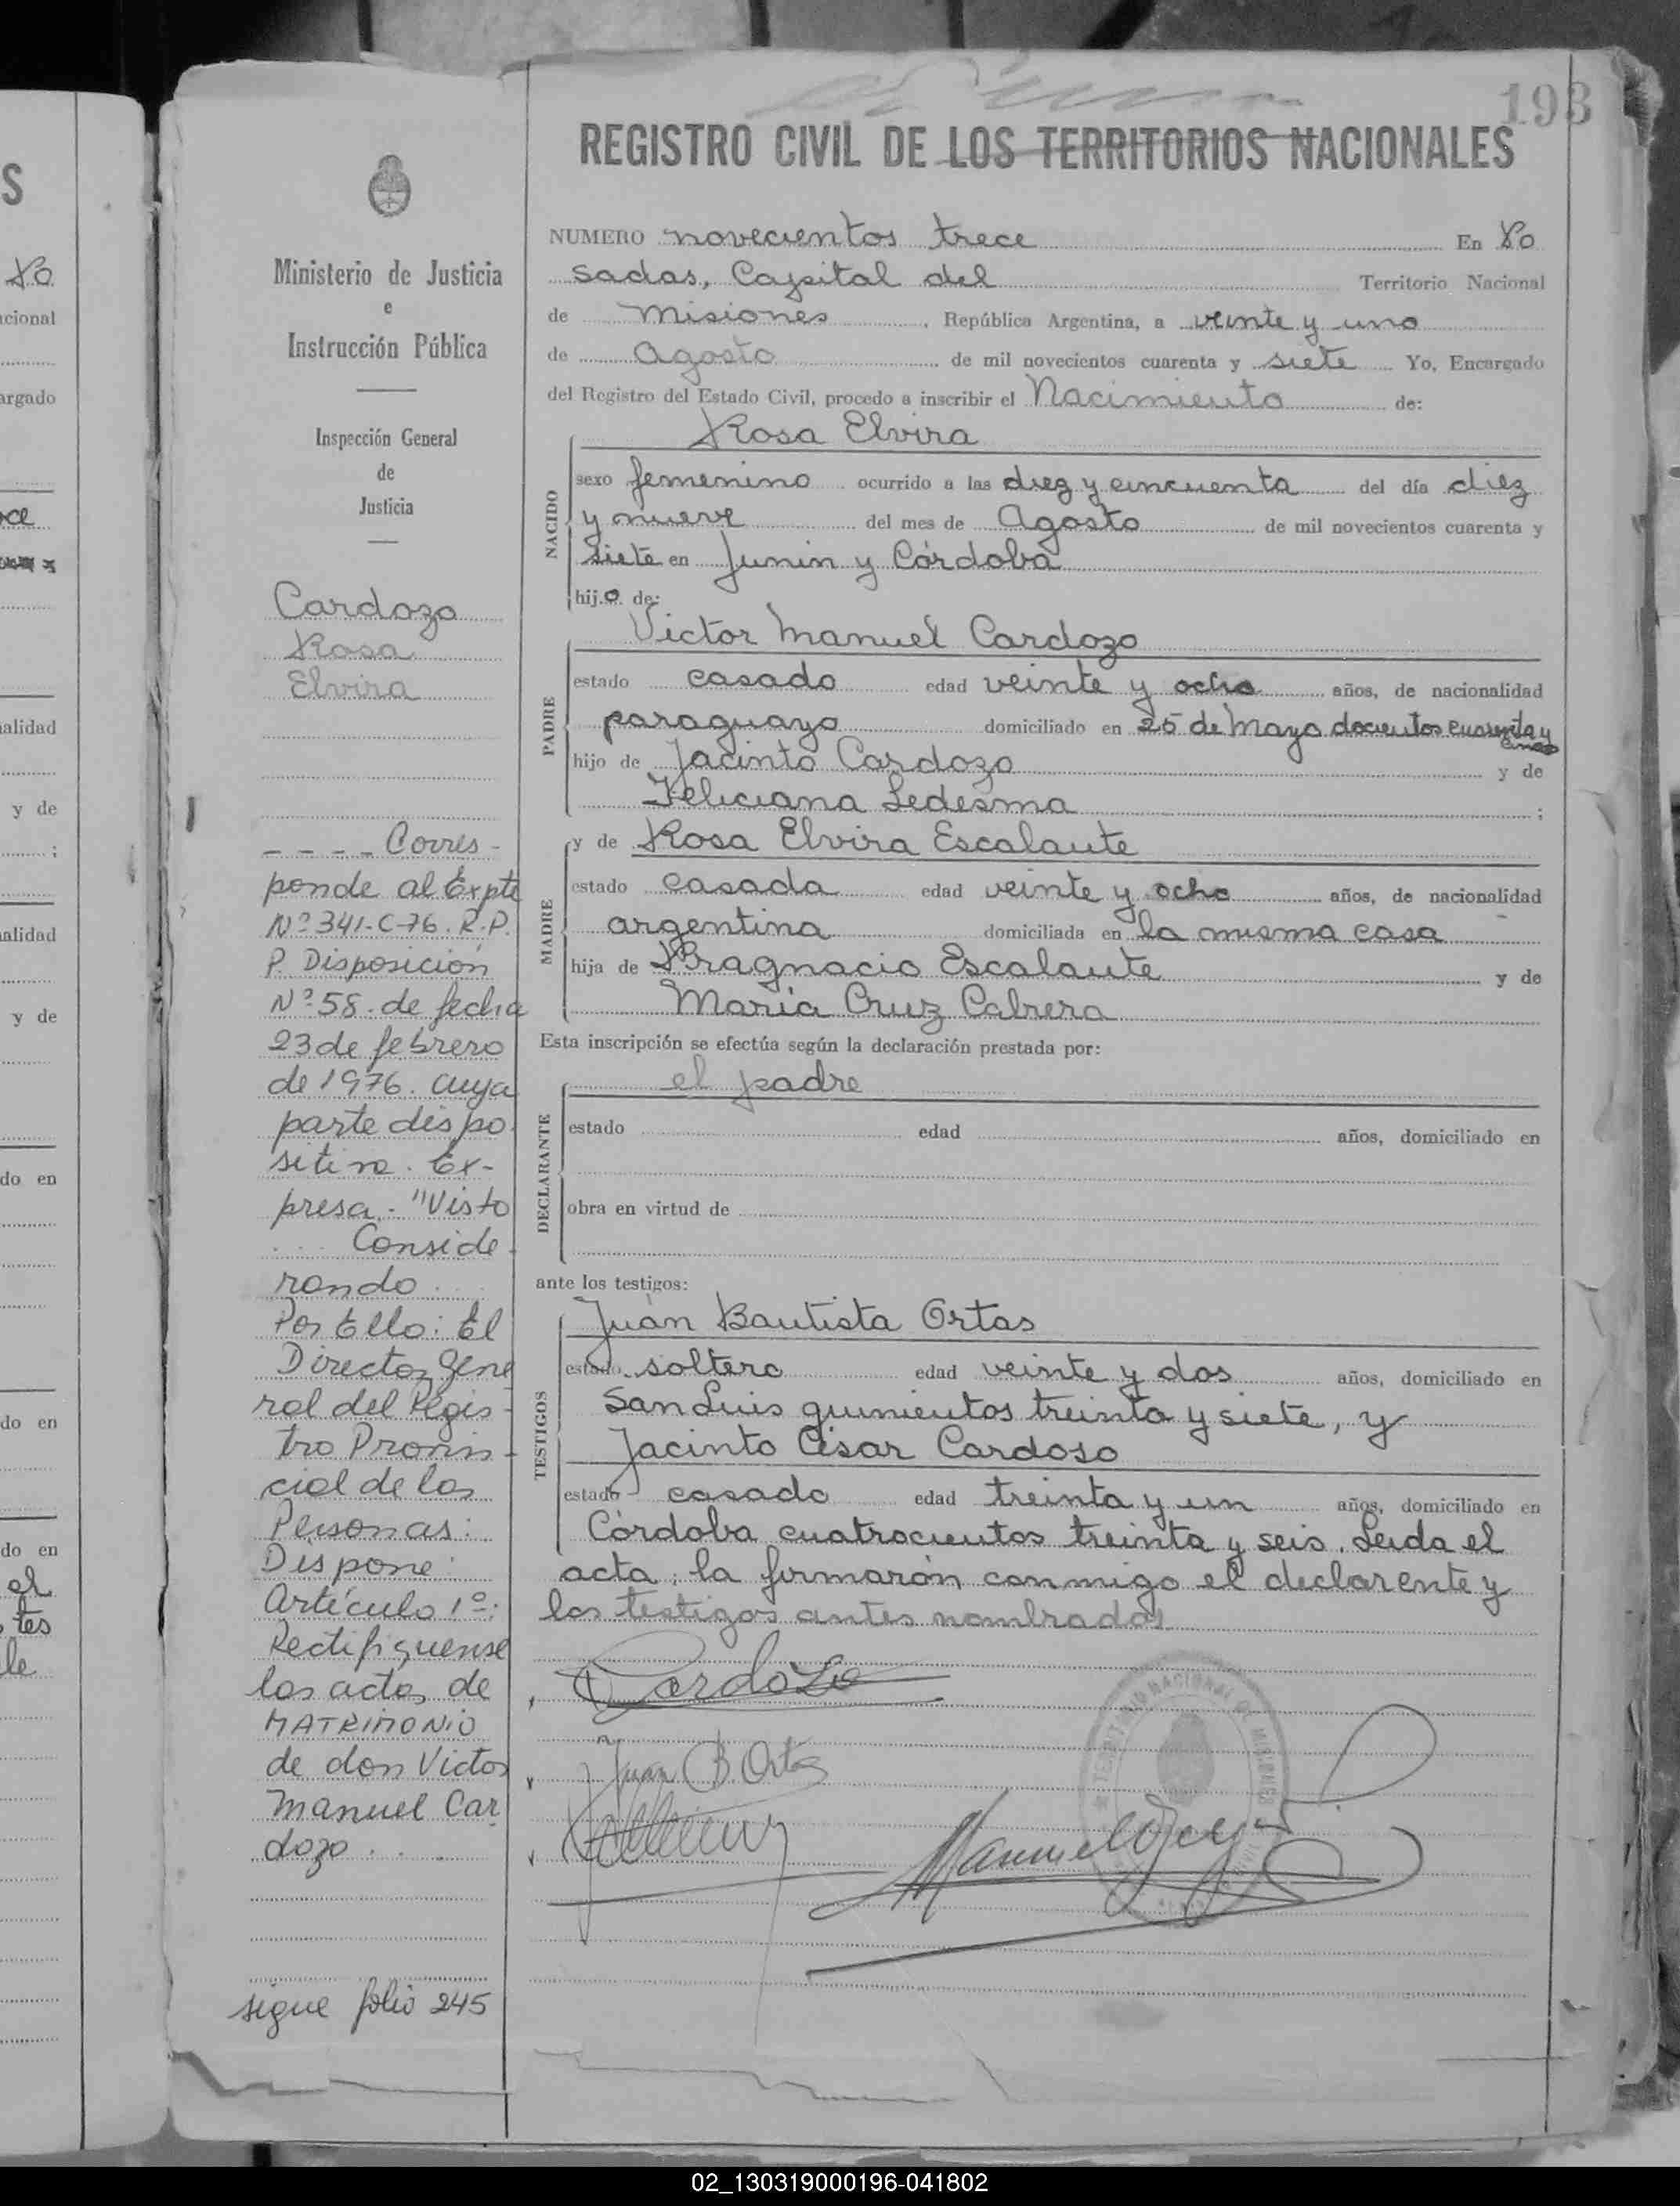 193
REGISTRO CIVIL DE LOS TERRITORIOS NACIONALES
Ministerio de Justicia
e
Instrucción Pública
Inspección General
de
Justicia
Cardozo
Rosa
Elvira
_ _ _ _ Corres-
ponde al Expte
Nº 341-C-76. R.P.
P. Disposición
Nº 58. de fecha
23 de febrero
de 1976. cuya
parte dispo
sitiva. Ex-
presa.- "Visto
... Conside-
rando ...
Por Ello: El
Director Gene
ral del Regis-
tro Provin-
cial de las
Personas:
Dispone:
Artículo 1º:
Rectifiquense
las actas de
MATRIMONIO
de don Victor
Manuel Car
dozo . . .
sigue folio 245
NUMERO novecientos trece En Po
sadas, Capital del Territorio Nacional
de Misiones, República Argentina, a veinte y uno
de Agosto de mil novecientos cuarenta y siete Yo, Encargado
del Registro del Estado Civil, procedo a inscribir el Nacimiento de:
NACIDO
Rosa Elvira
sexo femenino ocurrido a las diez y cincuenta del día diez
y nueve del mes de Agosto de mil novecientos cuarenta y
siete en Junin y Córdoba
hij.o. de:
PADRE
Victor Manuel Cardozo
estado casado edad veinte y ocho años, de nacionalidad
paraguayo domiciliado en 25 de Mayo docientos cuarenta y
cinco
hijo de Jacinto Cardozo y de
Feliciana Ledesma ;
MADRE
y de Rosa Elvira Escalante
estado casada edad veinte y ocho años, de nacionalidad
argentina domiciliada en la misma casa
hija de Escalante y de
María Cruz Cabrera
Esta inscripción se efectúa según la declaración prestada por:
DECLARANTE
el padre
estado edad años, domiciliado en
obra en virtud de
ante los testigos:
TESTIGOS
Juan Bautista Ortas
estado soltero edad veinte y dos años, domiciliado en
San Luis quinientos treinta y siete, y
Jacinto César Cardoso
estado casado edad treinta y un años, domiciliado en
Córdoba cuatrocientos treinta y seis. Leida el
acta, la firmarón conmigo el declarente y
los testigos antes nombrados
Cardozo
Juan B. Ortas
Manuel
TERRITORIO NACIONAL DE MISIONES
S
Po
acional
argado
alidad
y de
;
alidad
y de
do en
do en
do en
el
tes
le
02_130319000196-041802